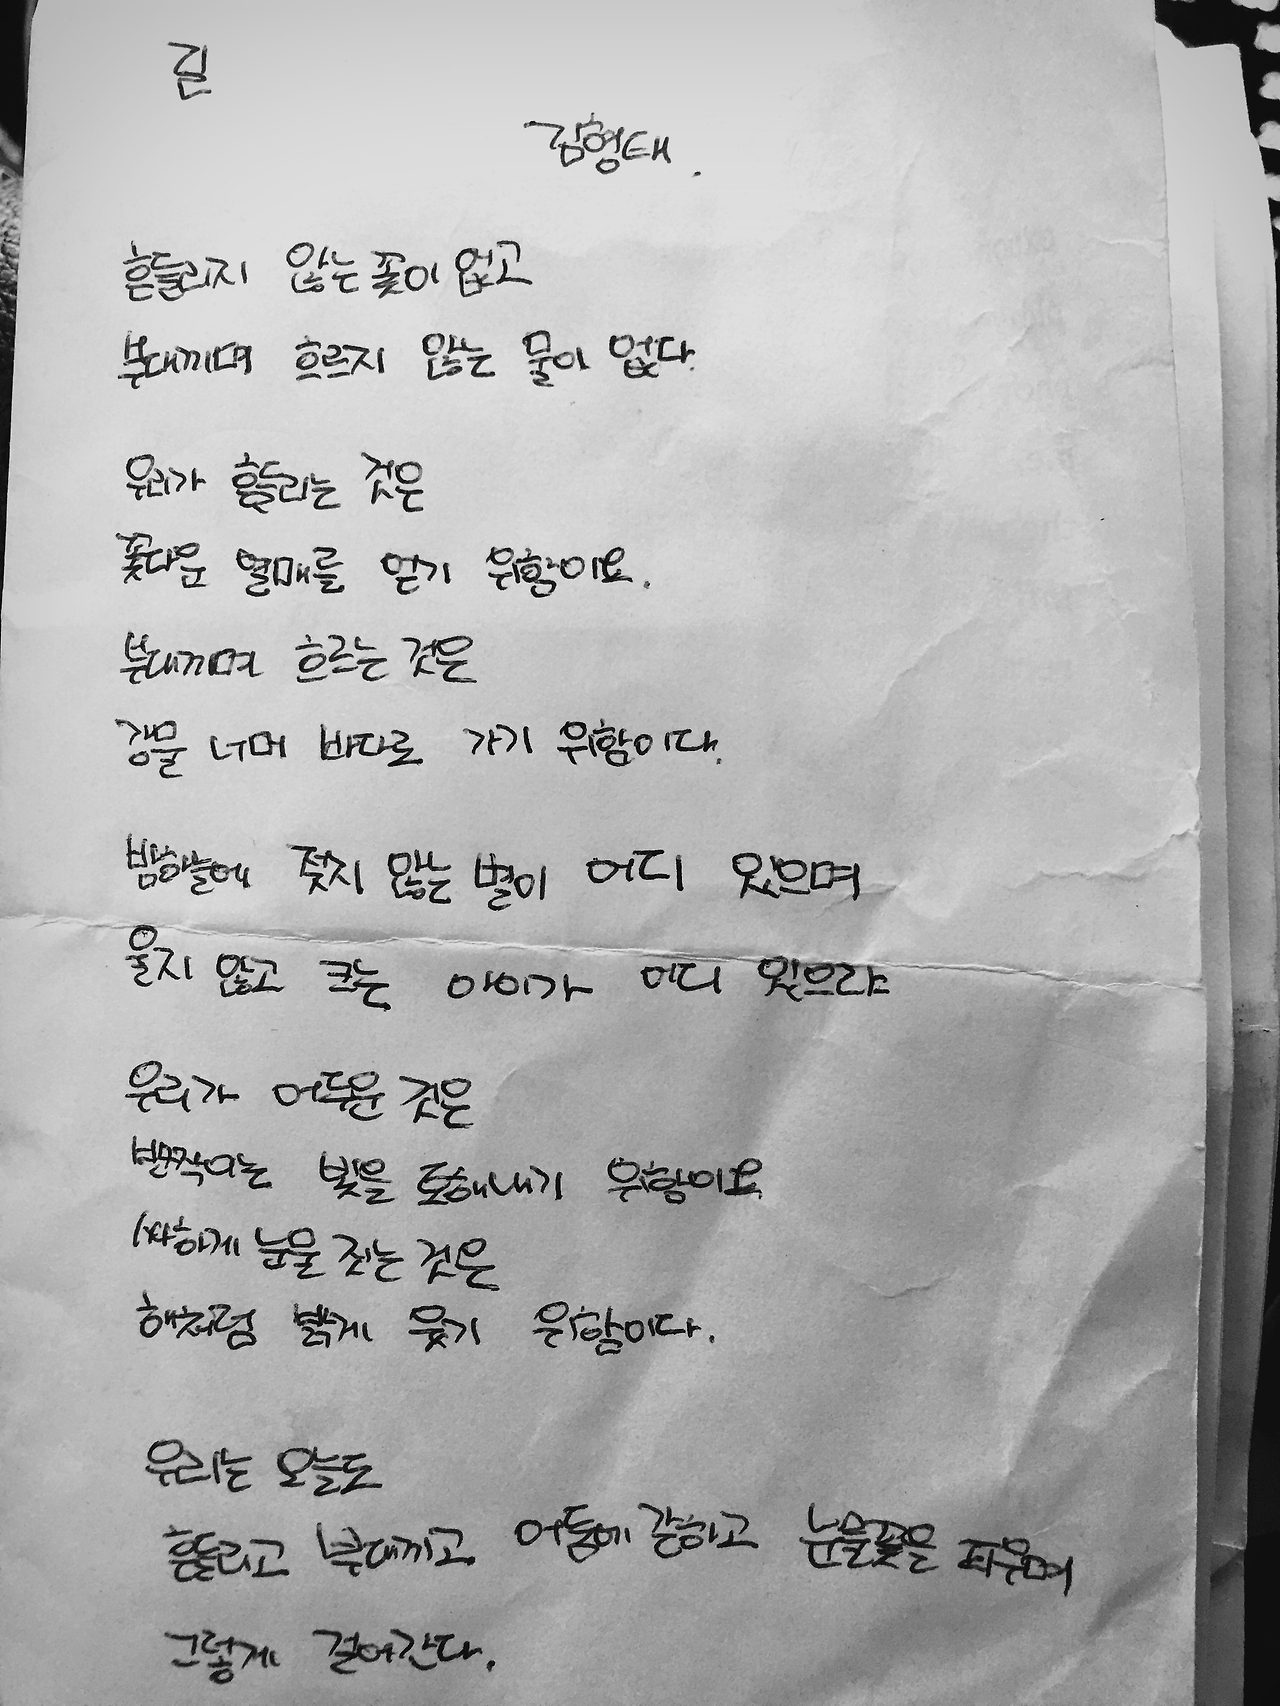 길
김형태.
흔들리지 않는 꽃이 없고
부대끼며 흐르지 않는 물이 없다.
우리가 흔들리는 것은
꽃다운 열매를 얻기 위함이요.
부대끼며 흐르는 것은
강물 너머 바다로 가기 위함이다.
밤하늘에 젖지 않는 별이 어디 있으며
울지 않고 크는 아이가 어디 있으랴
우리가 어두운 것은
반짝이는 빛을 토해내기 위함이요
싸하게 눈물 짓는 것은
해처럼 밝게 웃기 위함이다.
우리는 오늘도
흔들리고 부대끼고 어둠에 갇히고 눈물꽃을 피우며
그렇게 걸어간다.